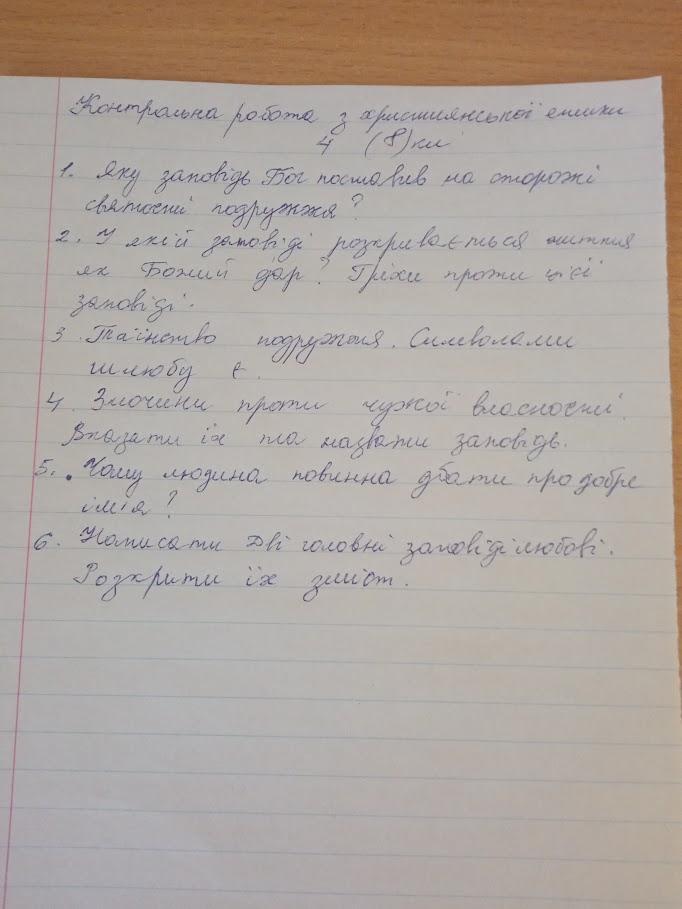 Контрольна робота з християнської етики
4 (8) кл
1. Яку заповідь Бог поставив на сторожі
святості подружжя?
2. У якій заповіді розкривається життя
як Божий дар? Гріхи проти цієї
заповіді.
3. Таїнство подружжя. Символами
шлюбу є.
4. Злочини проти чужої власності.
Вказати їх та назвати заповідь.
5. Чому людина повинна дбати про добре
ім'я?
6. Написати Дві головні заповіді любові.
Розкрити їх зміст.